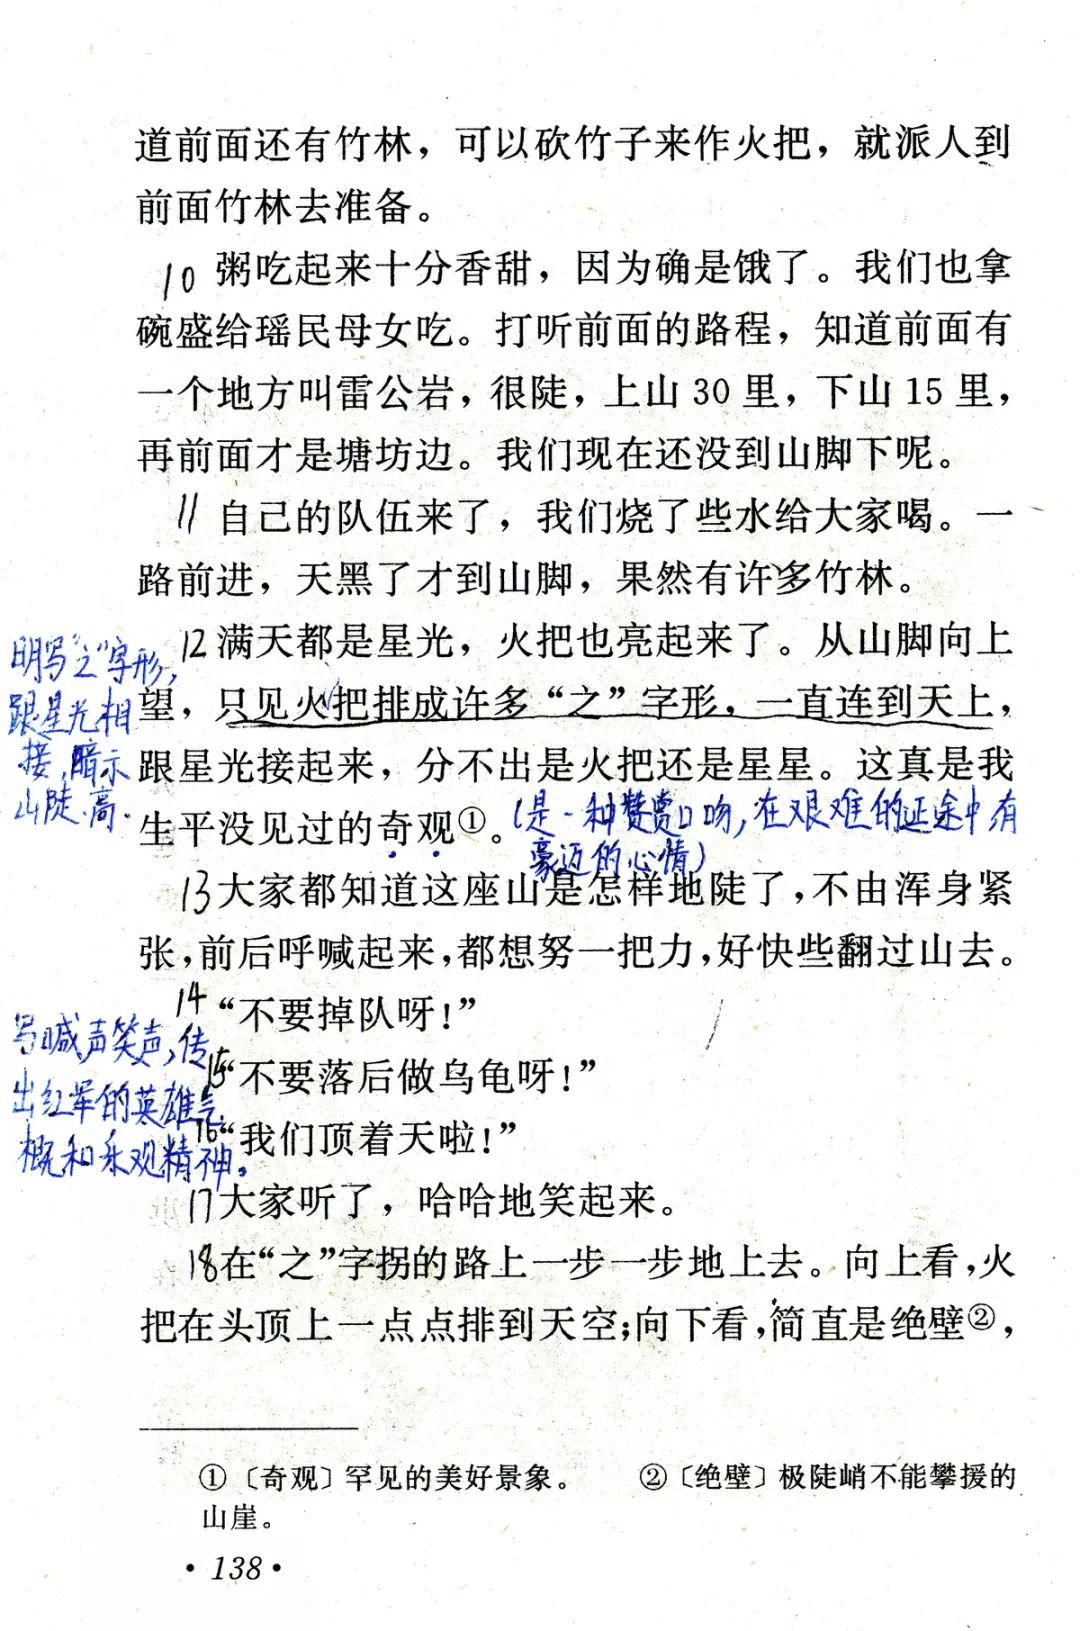 道前面还有竹林，可以砍竹子来作火把，就派人到
前面竹林去准备。
10 粥吃起来十分香甜，因为确是饿了。我们也拿
碗盛给瑶民母女吃。打听前面的路程，知道前面有
一个地方叫雷公岩，很陡，上山 30 里，下山 15 里，
再前面才是塘坊边。我们现在还没到山脚下呢。
11 自己的队伍来了，我们烧了些水给大家喝。一
路前进，天黑了才到山脚，果然有许多竹林。
12 满天都是星光，火把也亮起来了。从山脚向上
望，只见火把排成许多“之”字形，一直连到天上，
跟星光接起来，分不出是火把还是星星。这真是我
生平没见过的奇观①。
明写“之”字形，
跟星光相
接，暗示
山陡、高.
(是一种赞赏口吻，在艰难的征途中有
豪迈的心情)
13 大家都知道这座山是怎样地陡了，不由浑身紧
张，前后呼喊起来，都想努一把力，好快些翻过山去。
14 “不要掉队呀！”
15 “不要落后做乌龟呀！”
16 “我们顶着天啦！”
写喊声笑声，传
出红军的英雄气
概和乐观精神。
17 大家听了，哈哈地笑起来。
18 在“之”字拐的路上一步一步地上去。向上看，火
把在头顶上一点点排到天空；向下看，简直是绝壁②，
①〔奇观〕罕见的美好景象。 ②〔绝壁〕极陡峭不能攀援的
山崖。
·138·